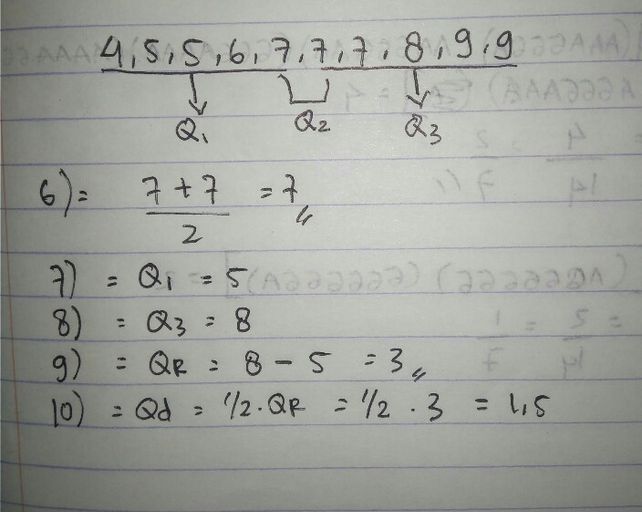 4, 5, 5, 6, 7, 7, 7, 8, 9, 9
Q₁ Q₂ Q₃
6) = 7 + 7 / 2 = 7 //
7) = Q₁ = 5
8) = Q₃ = 8
9) = QR = 8 - 5 = 3 //
10) = Qd = 1/2 . QR = 1/2 . 3 = 1,5